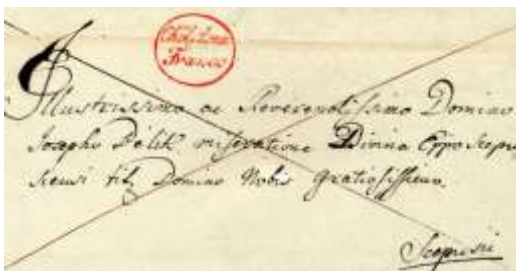 Franco
Illustrissimo ac Reverendissimo Domino
Josepho Bélik miseratione Divina Eppo Scepu
siensi tit. Domino Nobis gratiosissimo.